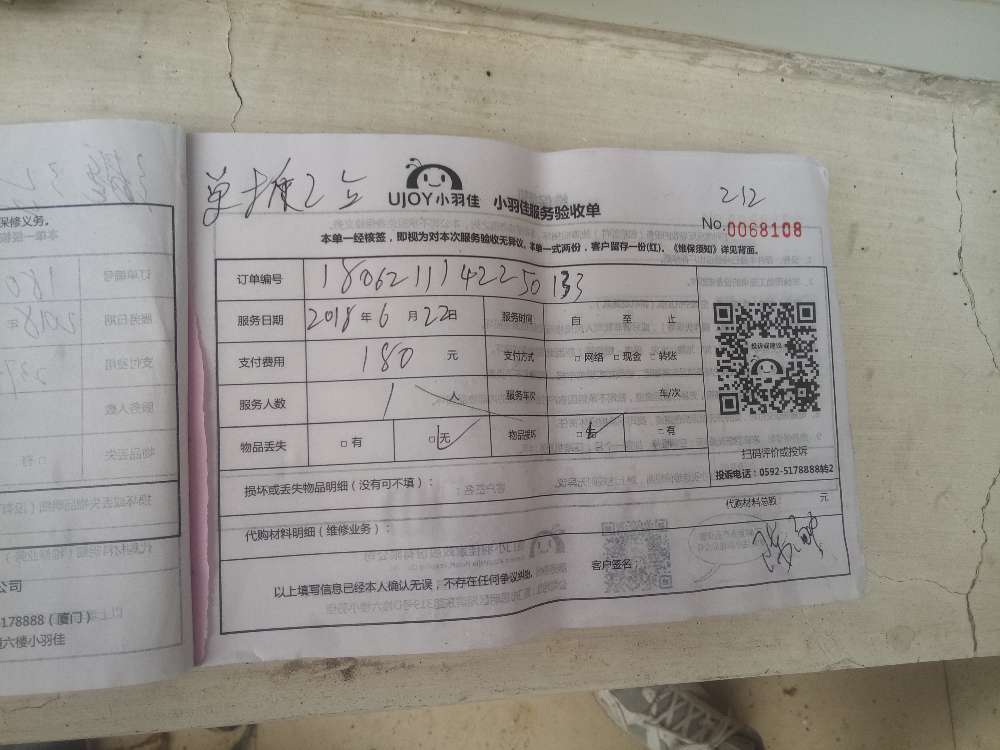 212
UJOY小羽佳 小羽佳服务验收单
No.0068108
本单一经核签，即视为对本次服务验收无异议。本单一式两份，客户留存一份(红)。《维保须知》详见背面。
订单编号 1806211142250133
服务日期 2018年6月22日 服务时间 自 至 止
支付费用 180 元 支付方式 □网络 □现金 □转账
服务人数 1 人 服务车次 车/次
物品丢失 □有 □无 物品损坏 □无 □有
投诉或建议
扫码评价或投诉
投诉电话：0592-5178888转2
损坏或丢失物品明细（没有可不填）：
代购材料总额： 元
代购材料明细（维修业务）：
以上填写信息已经本人确认无误，不存在任何争议纠纷。 客户签名：
保修义务。
公司
5178888（厦门）
六楼小羽佳